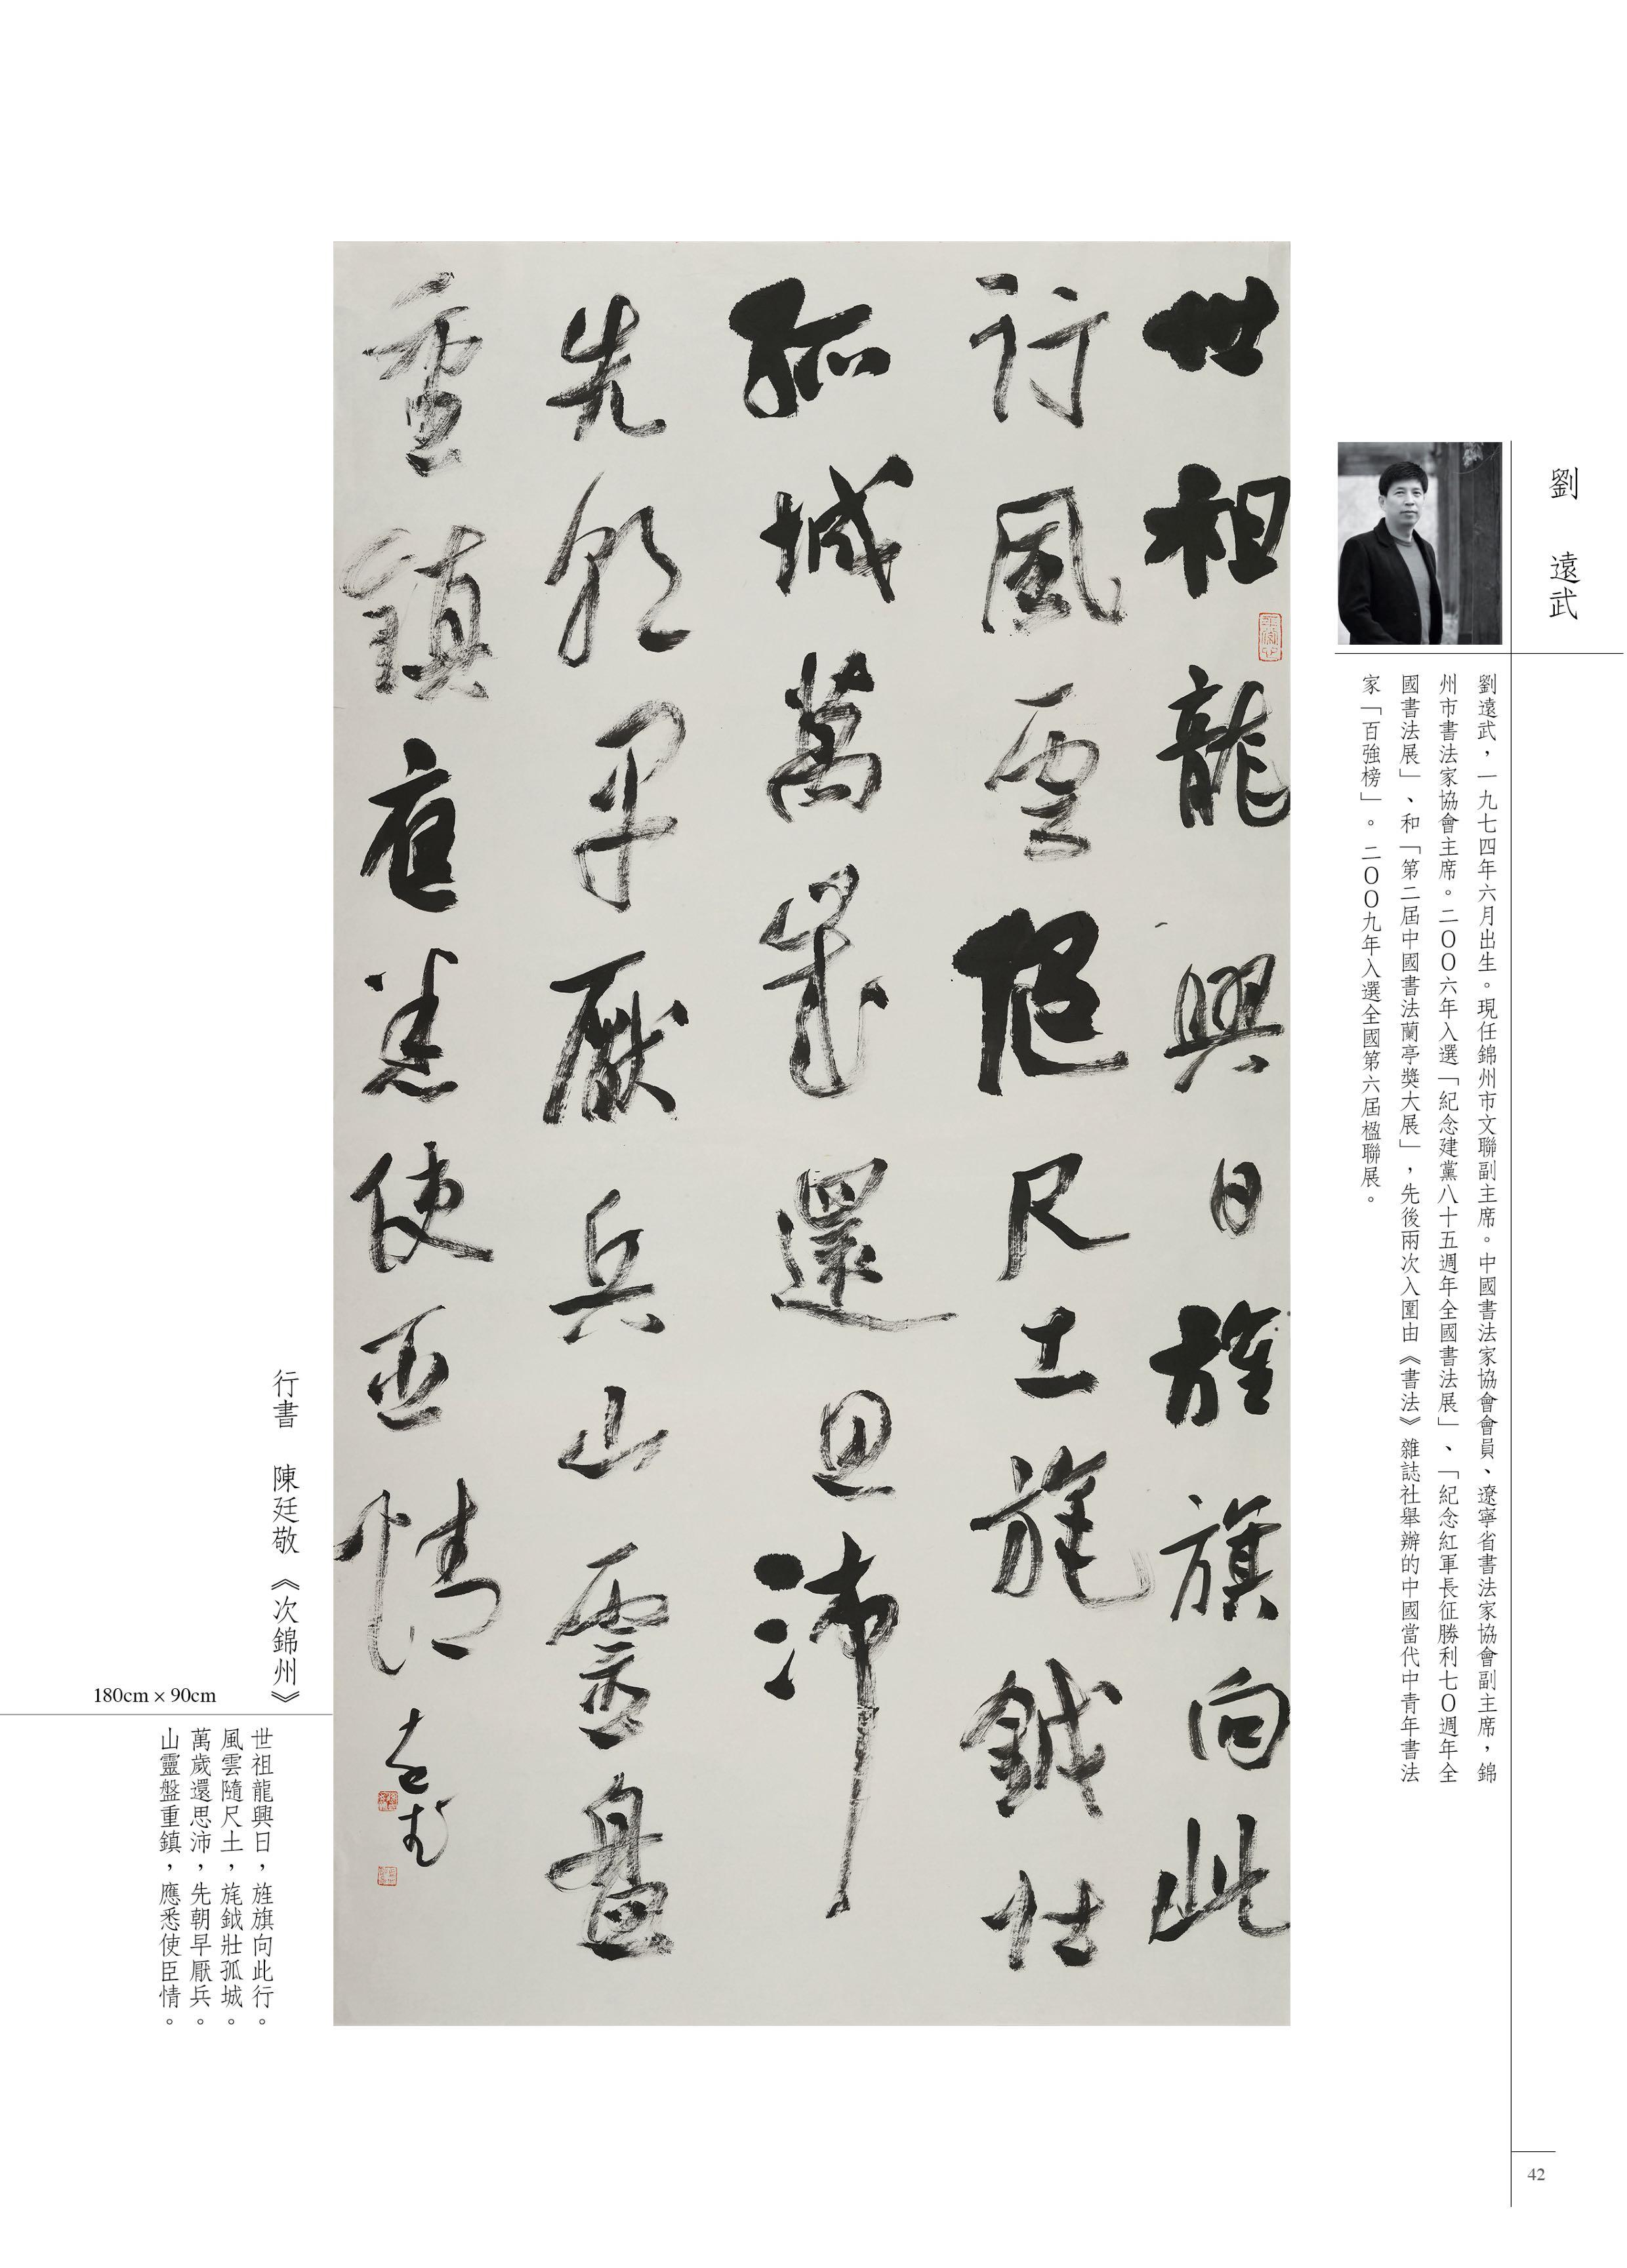 劉 遠武
劉遠武，一九七四年六月出生。現任錦州市文聯副主席。中國書法家協會會員、遼寧省書法家協會副主席，錦
州市書法家協會主席。二〇〇六年入選「紀念建黨八十五週年全國書法展」、「紀念紅軍長征勝利七〇週年全
國書法展」、和「第二屆中國書法蘭亭獎大展」，先後兩次入圍由《書法》雜誌社舉辦的中國當代中青年書法
家「百強榜」。二〇〇九年入選全國第六屆楹聯展。
世祖龍興日旌旗向此
行風雲隨尺土旄鉞壯
孤城萬歲還思沛
先朝早厭兵山靈盤
重鎮應悉使臣情 遠武
行書 陳廷敬 《次錦州》
180cm × 90cm
世祖龍興日，旌旗向此行。
風雲隨尺土，旄鉞壯孤城。
萬歲還思沛，先朝早厭兵。
山靈盤重鎮，應悉使臣情。
42